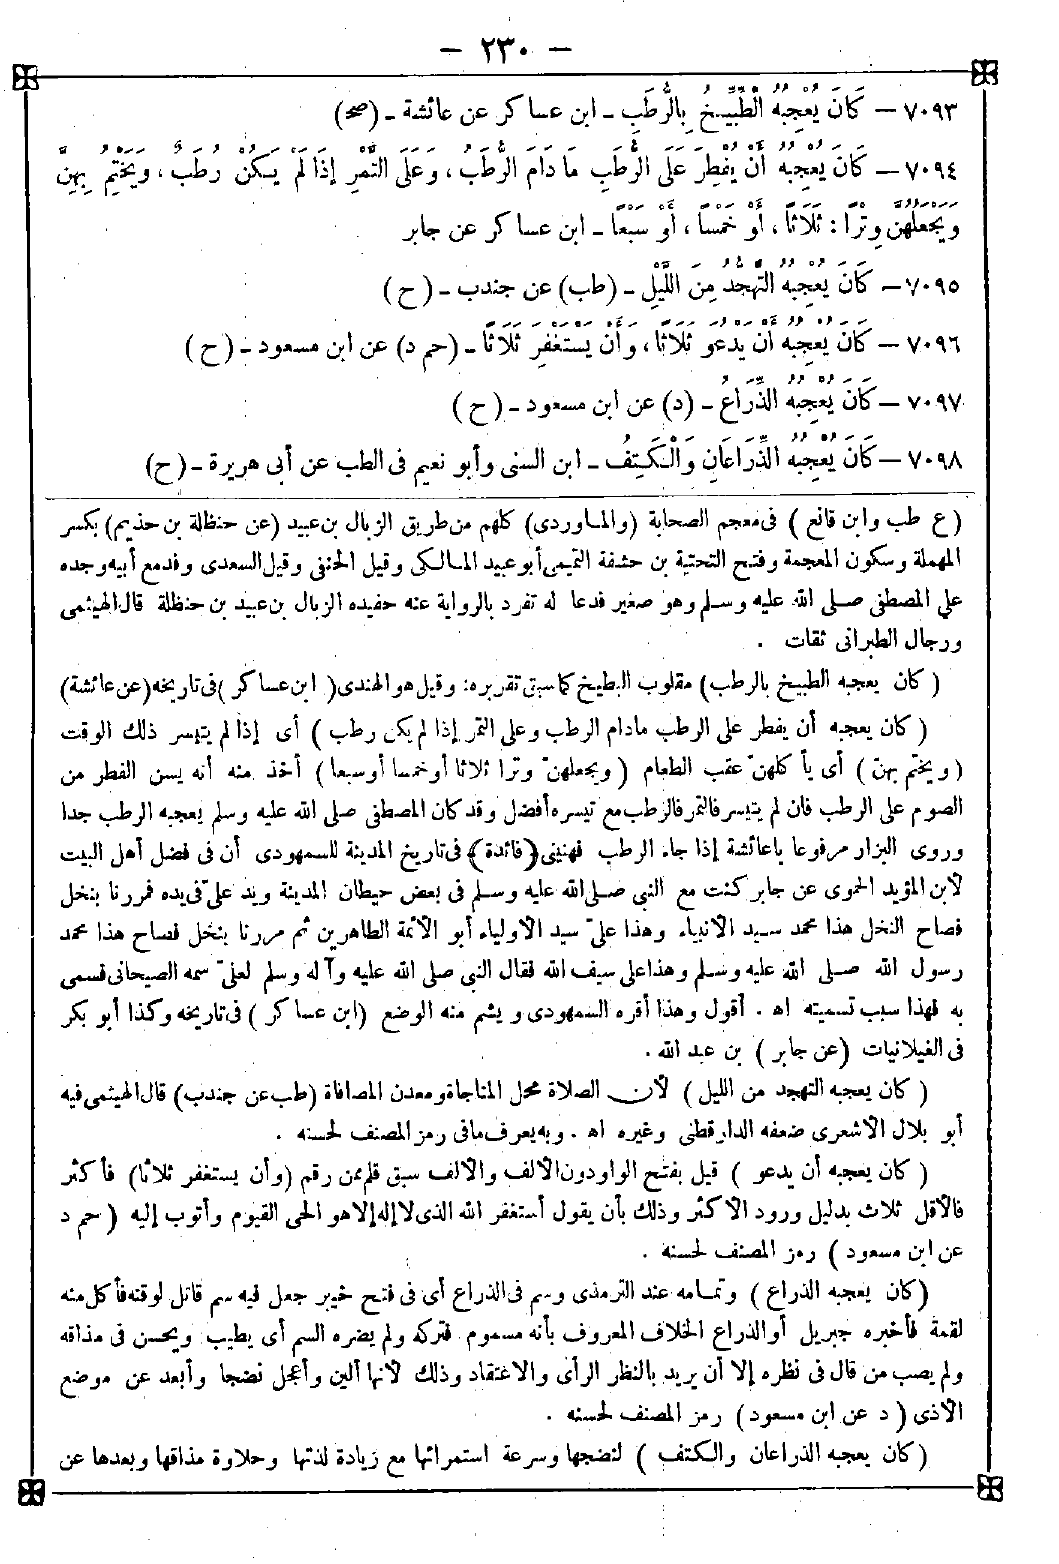 - ٢٣٠ -
٧٠٩٣ - كَانَ يُعْجِبُهُ الْطِّبِّيخُ بِالرُّطَبِ - ابن عساكر عن عائشة - (صح)
٧٠٩٤ - كَانَ يُعْجِبُهُ أَنْ يُفْطِرَ عَلَى الرُّطَبِ مَا دَامَ الرُّطَبُ ، وَعَلَى التَّمْرِ إِذَا لَمْ يَكُنْ رُطَبٌ ، وَيَخْتِمُ بِهِنَّ
وَيَجْعَلُهُنَّ وِتْرًا : ثَلَاثًا ، أَوْ خَمْسًا ، أَوْ سَبْعًا - ابن عساكر عن جابر
٧٠٩٥ - كَانَ يُعْجِبُهُ التَّهَجُّدُ مِنَ اللَّيْلِ - (طب) عن جندب - (ح)
٧٠٩٦ - كَانَ يُعْجِبُهُ أَنْ يَدْعُوَ ثَلَاثًا ، وَأَنْ يَسْتَغْفِرَ ثَلَاثًا - (حم د) عن ابن مسعود - (ح)
٧٠٩٧ - كَانَ يُعْجِبُهُ الذِّرَاعُ - (د) عن ابن مسعود - (ح)
٧٠٩٨ - كَانَ يُعْجِبُهُ الذِّرَاعَانِ وَالْكَتِفُ - ابن السنى وأبو نعيم فى الطب عن أبى هريرة - (ح)
(ع طب وابن قانع) فى معجم الصحابة (والماوردى) كلهم من طريق الزبال بن عبيد (عن حنظلة بن حذيم) بكسر
المهملة وسكون المعجمة وفتح التحتية بن حشفة التميمى أبو عبيد المالكى وقيل الحنفى وقيل السعدى وفد مع أبيه وجده
على المصطفى صلى الله عليه وسلم وهو صغير فدعا له تفرد بالرواية عنه حفيده الزبال بن عبيد بن حنظلة قال الهيثمى
ورجال الطبرانى ثقات .
(كان يعجبه الطبيخ بالرطب) مقلوب البطيخ كما سبق تقريره: وقيل هو الهندى (ابن عساكر) فى تاريخه (عن عائشة)
(كان يعجبه أن يفطر على الرطب مادام الرطب وعلى التمر إذا لم يكن رطب) أى إذا لم يتيسر ذلك الوقت
(ويختم بهنّ) أى يأكلهنّ عقب الطعام (ويجعلهنّ وترا ثلاثا أو خمسا أو سبعا) أخذ منه أنه يسن الفطر من
الصوم على الرطب فان لم يتيسر فالتمر فالرطب مع تيسره أفضل وقد كان المصطفى صلى الله عليه وسلم يعجبه الرطب جدا
وروى البزار مرفوعا ياعائشة إذا جاء الرطب فهنينى (فائدة) فى تاريخ المدينة للسمهودى أن فى فضل أهل البيت
لابن المؤيد الحموى عن جابر كنت مع النبي صلى الله عليه وسلم فى بعض حيطان المدينة ويد علىّ فى يده فمررنا بنخل
فصاح النخل هذا محمد سيد الانبياء وهذا علىّ سيد الاولياء أبو الأئمة الطاهرين ثم مررنا بنخل فصاح هذا محمد
رسول الله صلى الله عليه وسلم وهذا على سيف الله فقال النبي صلى الله عليه وآله وسلم لعلىّ سمه الصيحانى فسمى
به فهذا سبب تسميته اه . أقول وهذا أقره السمهودى ويشم منه الوضع (ابن عساكر) فى تاريخه وكذا أبو بكر
فى الغيلانيات (عن جابر) بن عبد الله .
(كان يعجبه التهجد من الليل) لأن الصلاة محل المناجاة ومعدن المصافاة (طب عن جندب) قال الهيثمى فيه
أبو بلال الأشعرى ضعفه الدارقطنى وغيره اه . وبه يعرف مافى رمز المصنف لحسنه .
(كان يعجبه أن يدعو) قيل بفتح الواو دون الألف والالف سبق قلم ممن رقم (وأن يستغفر ثلاثا) فأكثر
فالأقل ثلاث بدليل ورود الأكثر وذلك بأن يقول أستغفر الله الذى لا إله إلا هو الحى القيوم وأتوب إليه (حم د
عن ابن مسعود) رمز المصنف لحسنه .
(كان يعجبه الذراع) وتمامه عند الترمذى وسم فى الذراع أى فى فتح خيبر جعل فيه سم قاتل لوقته فأكل منه
لقمة فأخبره جبريل أو الذراع الخلاف المعروف بأنه مسموم فتركه ولم يضره السم أى يطيب ويحسن فى مذاقه
ولم يصب من قال فى نظره إلا أن يريد بالنظر الرأى والاعتقاد وذلك لأنها ألين وأعجل نضجا وأبعد عن موضع
الأذى (د عن ابن مسعود) رمز المصنف لحسنه .
(كان يعجبه الذراعان والكتف) لنضجها وسرعة استمرائها مع زيادة لذتها وحلاوة مذاقها وبعدها عن